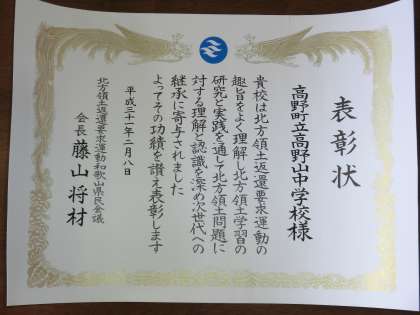 表彰状
高野町立高野山中学校様
貴校は北方領土返還要求運動の
趣旨をよく理解し北方領土学習の
研究と実践を通して北方領土問題に
対する理解と認識を深め次世代への
継承に寄与されました
よってその功績を讃え表彰します
平成三十一年二月八日
北方領土返還要求運動和歌山県民会議
会長 藤山将材